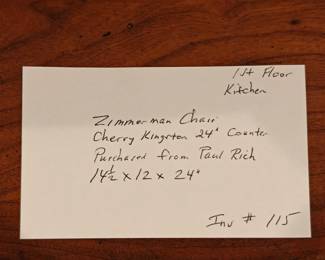 1st Floor
Kitchen
Zimmerman Chair
Cherry Kingston 24" Counter
Purchased from Paul Rich
14½ x 12 x 24"
Inv # 115